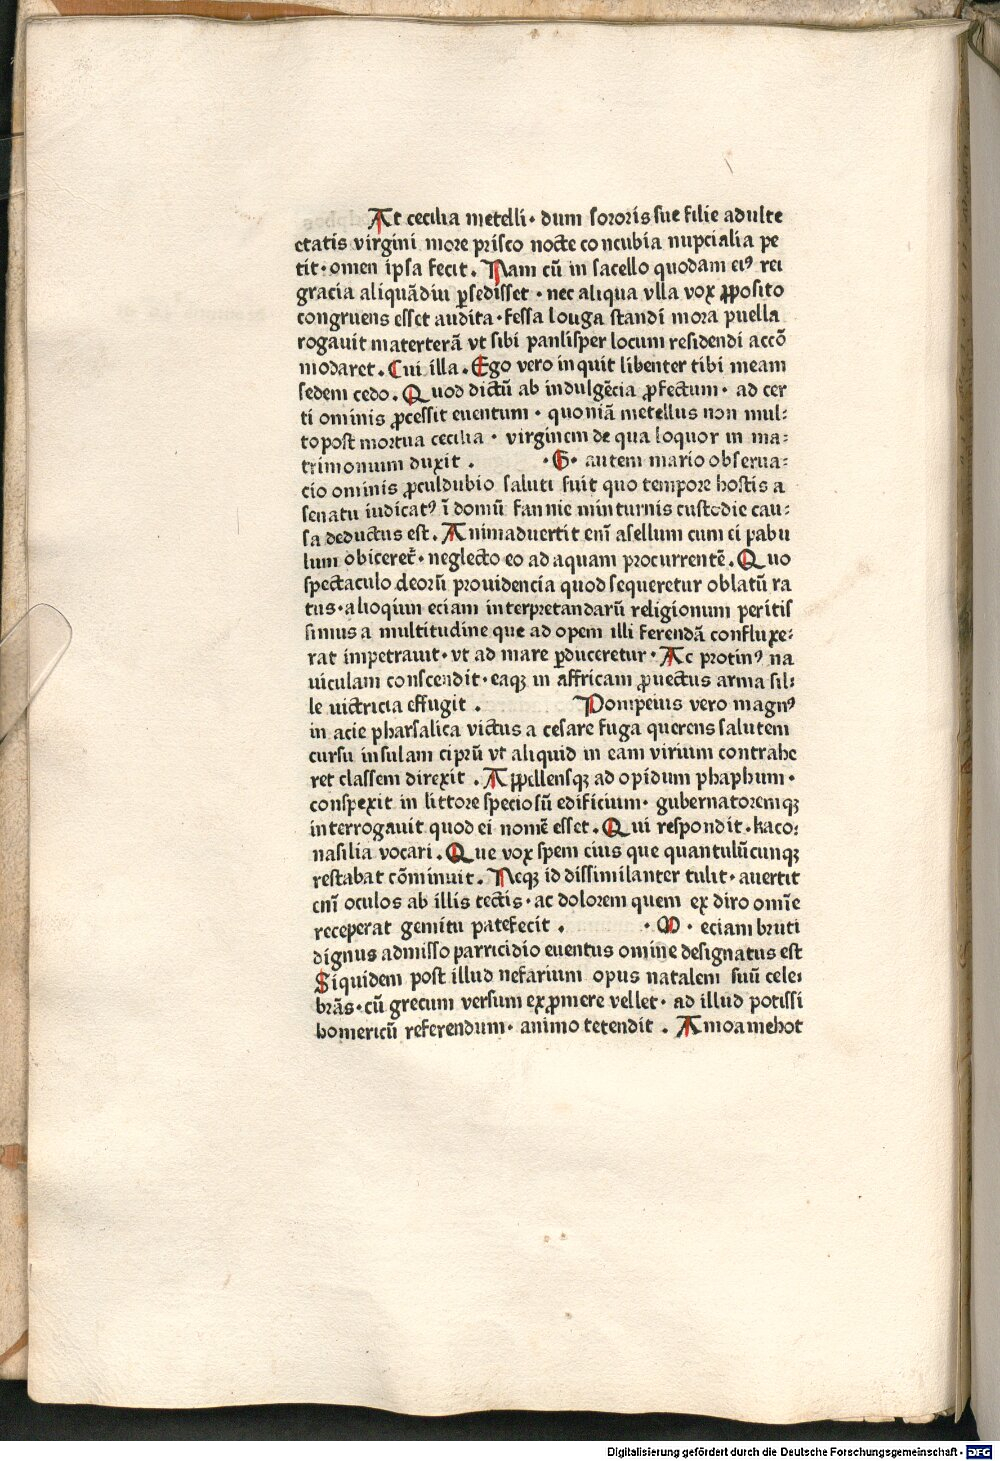 At cecilia metelli· dum sororis sue filie adulte
etatis virgini more prisco nocte concubia nupcialia pe
tit· omen ipsa fecit. Nam cū in sacello quodam eiꝰ rei
gracia aliquādiu ꝑsedisset · nec aliqua vlla vox ꝓposito
congruens esset audita· fessa louga standi mora puella
rogauit materterā vt sibi panlisper locum residendi accō
modaret. Cui illa. Ego vero inquit libenter tibi meam
sedem cedo. Quod dictū ab indulgēcia ꝓfectum· ad cer
ti ominis ꝓcessit euentum · quoniā metellus non mul⸗
to post mortua cecilia · virginem de qua loquor in ma⸗
trimonium duxit . ·G· autem mario obserua⸗
cio ominis ꝓculdubio saluti fuit quo tempore hostis a
senatu iudicatꝰ ī domū fannie minturnis custodie cau⸗
sa deductus est. Animaduertit enī asellum cum ei pabu
lum obiceret̄· neglecto eo ad aquam procurrentē. Quo
spectaculo deorū prouidencia quod sequeretur oblatū ra
tus· alioqium eciam interpretandarū religionum peritis
simus a multitudine que ad opem illi ferendā confluxe⸗
rat impetrauit· vt ad mare ꝑduceretur· Ac protinꝰ na
uiculam conscendit· eaqꝫ in affricam ꝓuectus arma sil⸗
le uictricia effugit . Pompeius vero magnꝰ
in acie pharsalica victus a cesare fuga querens salutem
cursu insulam ciprū vt aliquid in eam virium contrahe
ret classem direxit . Aꝓpellensqꝫ ad opidum phaphum·
conspexit in littore speciosū edificium· gubernatoremqꝫ
interrogauit quod ei nomē esset. Qui respondit· kaco⸗
nasilia vocari. Que vox spem eius que quantulūcunqꝫ
restabat cōminuit. Neqꝫ id dissimilanter tulit· auertit
enī oculos ab illis tectis· ac dolorem quem ex diro omīe
receperat gemitu patefecit . ·M· eciam bruti
dignus admisso parricidio euentus omine designatus est
Siquidem post illud nefarium opus natalem suū cele⸗
brās· cū grecum versum exꝓmere vellet· ad illud potissi
homericū referendum· animo tetendit . Amoamehot
Digitalisierung gefördert durch die Deutsche Forschungsgemeinschaft - DFG